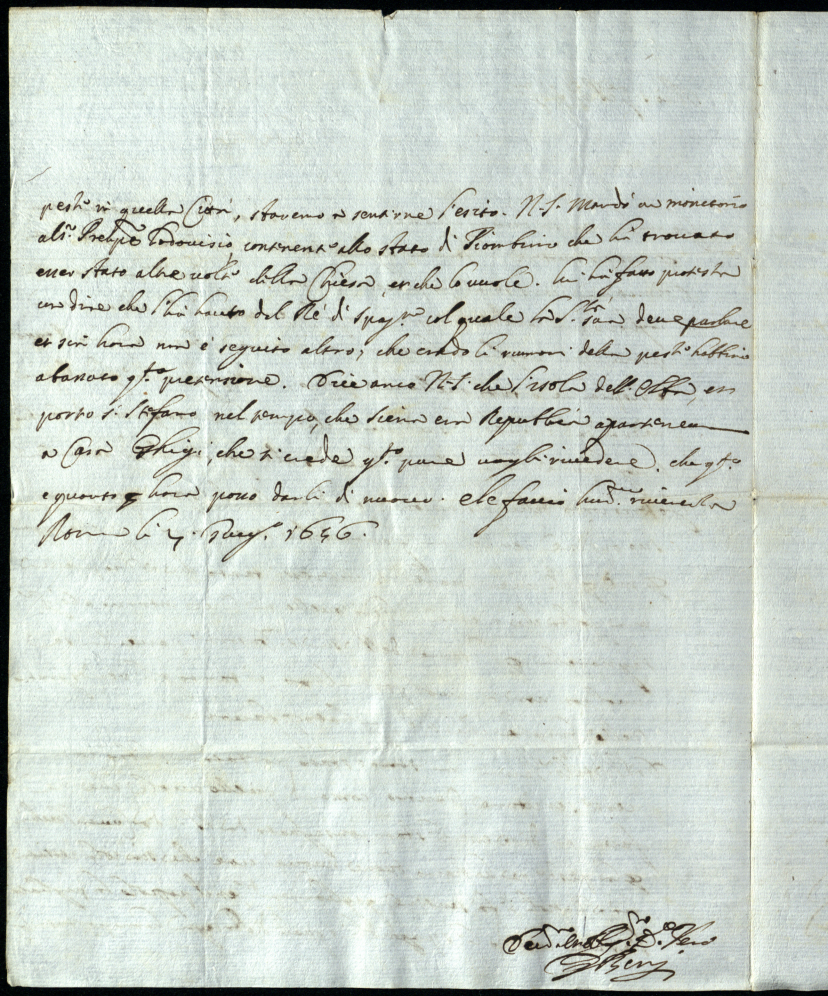 pest.ᵃ in quella Città, staremo a sentirne l'esito. N.S. Mandò un monitorio
al S.ʳ Prencipe Lodovisio continente allo stato di Piombino che hà trovato
esser stato altre volte della Chiesa, et che lo vuole. lui hà fatto protesta
con dire che l'hà hauto del Rè di Spag.ᵃ col quale la S.ᵗᵃ sua deve parlare
et sin hora non è seguito altro; che credo li rumori della pest.ᵃ habbino
q.ᵗᵃ pretensione. Dice anco N.S. che l'isola dell'Elba, et
porto S. Stefano nel tempo, che Siena era Republica aparteneva
a Casa Ghigi, che si crede q.ᵗᵒ pure vogli rivedere. che q.ᵗᵒ
è quanto p hora posso darli di nuovo. e le faccio hum.ᵐᵃ riverenza
Roma li 1656.